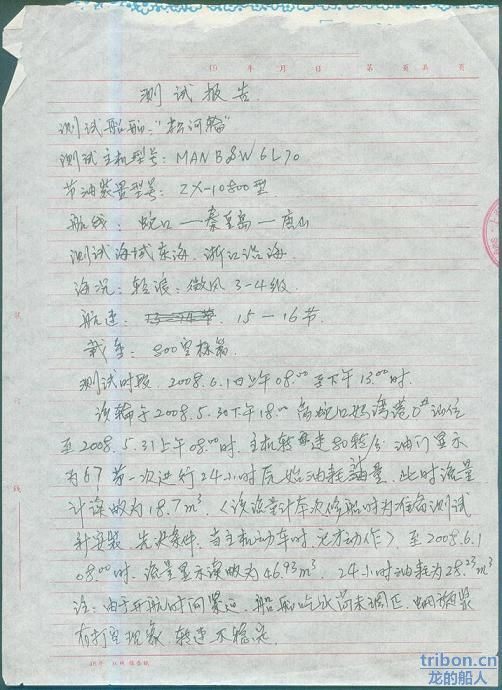 19 年 月 日 第 页共 页
测试报告
测试船舶:"松河轮"
测试主机型号: MAN B&W 6L70
节油装置型号: ZX-10800型
航线: 蛇口—秦皇岛—唐山
测试海域 东海 浙江沿海
海况: 轻浪: 微风 3-4级
航速: 15-16节
载重: 800空标箱
测试时段 2008.6.1日上午08.00至下午13.00时.
该轮于2008.5.30下午18.00离蛇口妈湾港 泊位
至2008.5.31上午08.00时. 主机转速80转/ 油门显示
为67 第一次进行24小时原始油耗油量. 此时流量
计读数为18.7m³ (该流量计本次修船时为准备测试
新安装 先决条件. 当主机动车时. 它才动作) 至2008.6.1
08.00时. 流量显示读数为46.93m³. 24小时油耗为28.23m³
注: 由于开航时间紧迫 船舶吃水尚未调正.
有打空现象. 转速不稳定
tribon.cn
龙的船人